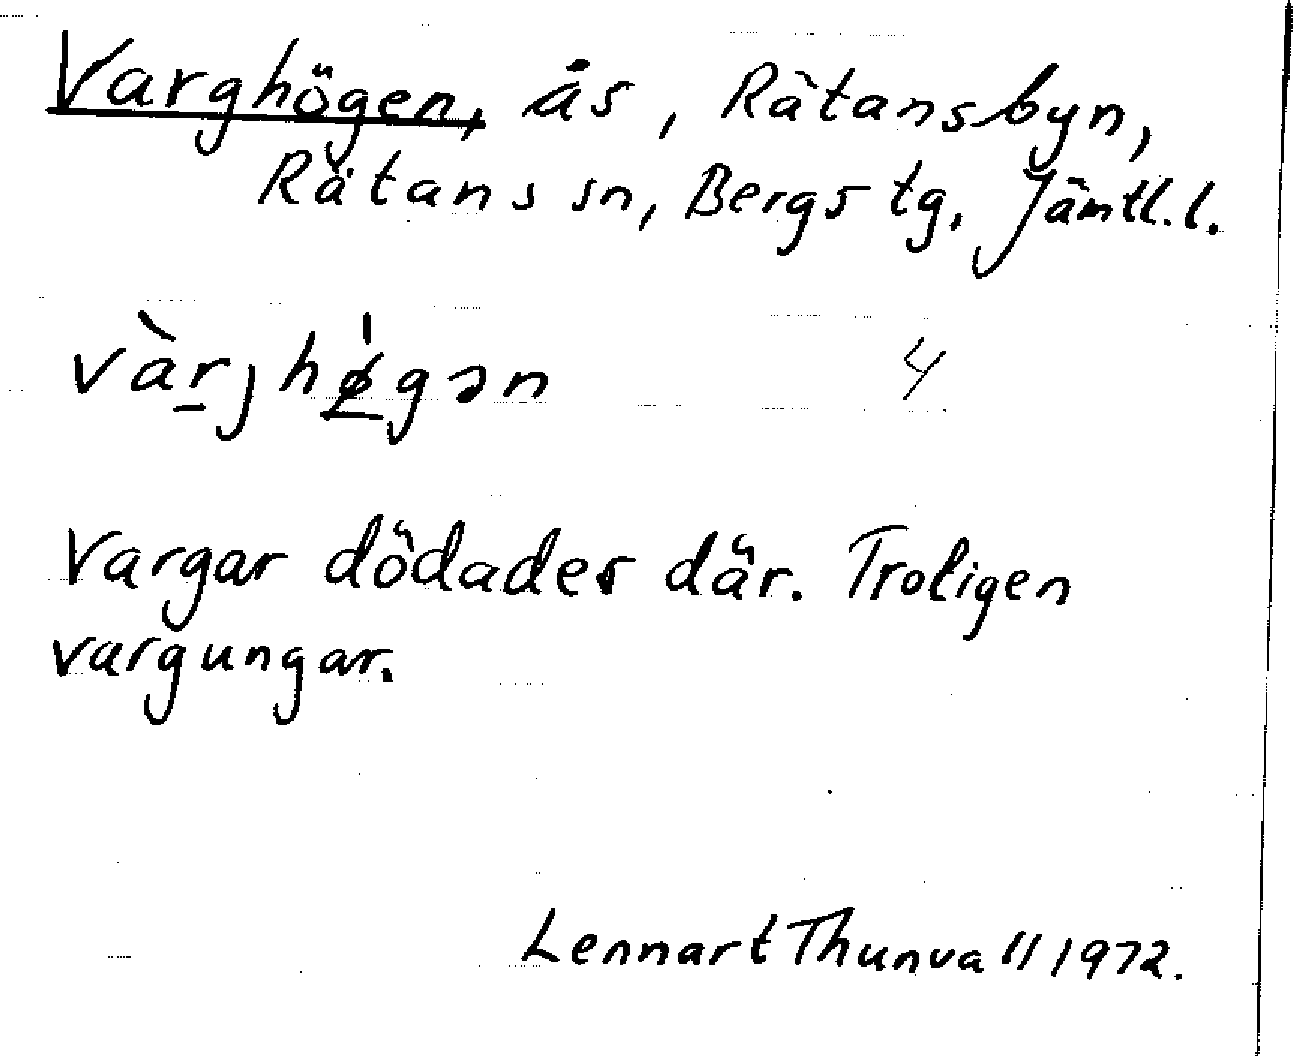 Varghögen, ås, Rätansbyn,
Rätans sn, Bergs tg, Jämtl.l.
vàrjhǿgən 4
Vargar dödades där. Troligen
vargungar.
Lennart Thunvall 1972.